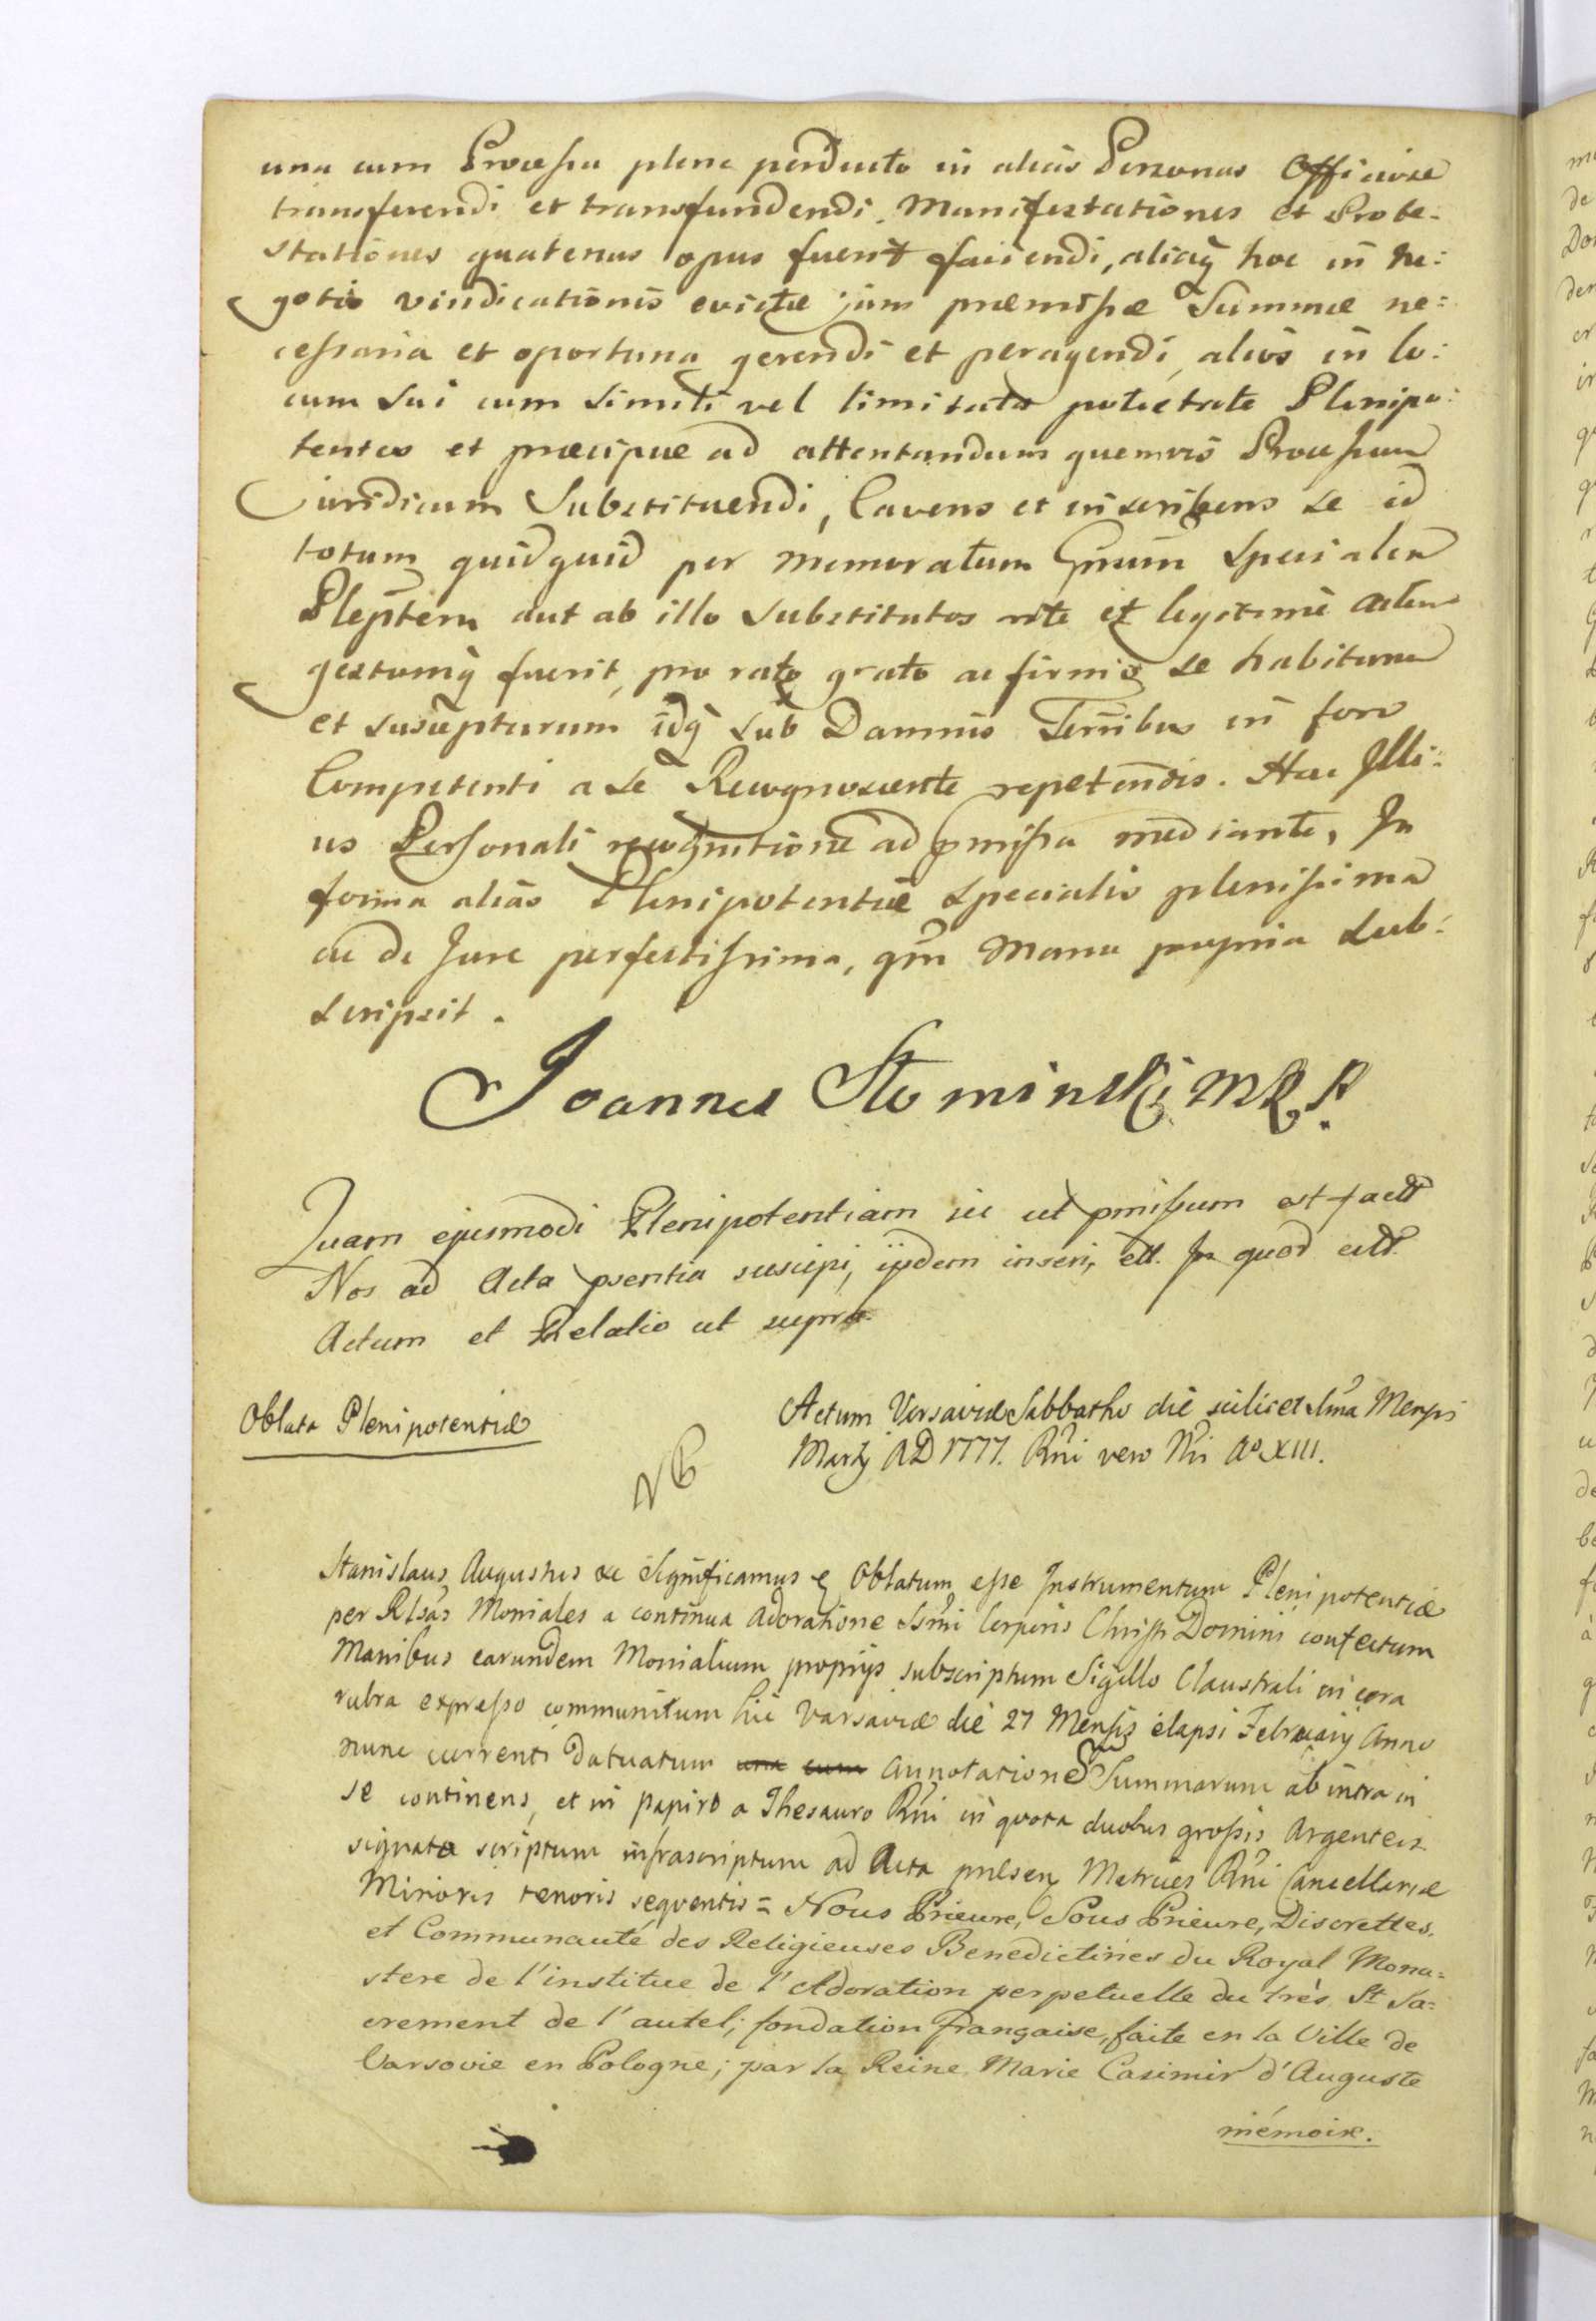 una cum Processu plene perducto in alias Personas Officiose
transferendi et transfundendi, Manifestationes et Prote:
stationes quatenus opus fuerit faciendi, aliaq̃ hoc in Ne:
gotio vindicationis evictæ jam præmissæ Summæ ne:
cessaria et oportuna gerendi et peragendi, alios in lo:
cum sui cum simili vel limitata potestate Plenipo:
tentes et præcipue ad attentandum quemvis Processum
juridicum Substituendi, Cavens et inscribens se id
totum quidquid per memoratum Gnsum Specialem
Pleptem aut ab illo substitutos rite et legitime actum
gestumq̃ fuerit, pro rato grato ac firmo se habiturum
et suscepturum idq̃ sub Damnis Terribus in foro
Competenti a se Recognoscente repetendis. Hac Illi:
us Personali recognitione ad pmissa mediante, In
forma alias Plenipotentiæ Specialis plenissima
ac de Jure perfectissima, qm Manu propria sub:
scripsit.
Joannes Słominski mp.
Quam ejusmodi Plenipotentiam sic ut pmissum est fact
Nos ad Acta psentia suscipi, ijsdem inseri, ett. In quod ett.
Actum et Relatio ut supra
Oblata Plenipotentiæ
Actum Varsaviæ Sabbatho die scilicet 1ma Mensis
Martij AD 1777. Rni vero Nri Aº XIII.
NB
Stanislaus Augustus &c Significamus & Oblatum esse Instrumentum Plenipotentiæ
per Rlsas Moniales a continua Adoratione Ssmi Corporis Christi Domini confectum
Manibus earundem Monialium proprijs subscriptum Sigillo Claustrali in cera
rubra expresso communitum hic Varsaviæ die 27 Mensis elapsi Februarij Anno
nunc currenti Datuatum una cum annotatione Summarum ab intra in
se continens, et in papiro a Thesauro Rni in quota duobus grossis Argenteis
signata scriptum infrascriptum ad Acta pnlsen Metrices Rni Cancellariæ
Minoris tenoris sequentis = Nous Prieure, Sous Prieure, Discrettes,
et Communauté des Religieuses Benedictines du Royal Mona:
stere de l'institue de l'Adoration perpetuelle du très St. Sa:
crement de l'autel; fondation française, faite en la Ville de
Varsovie en Pologne; par la Reine Marie Casimir d'Auguste
mémoire.